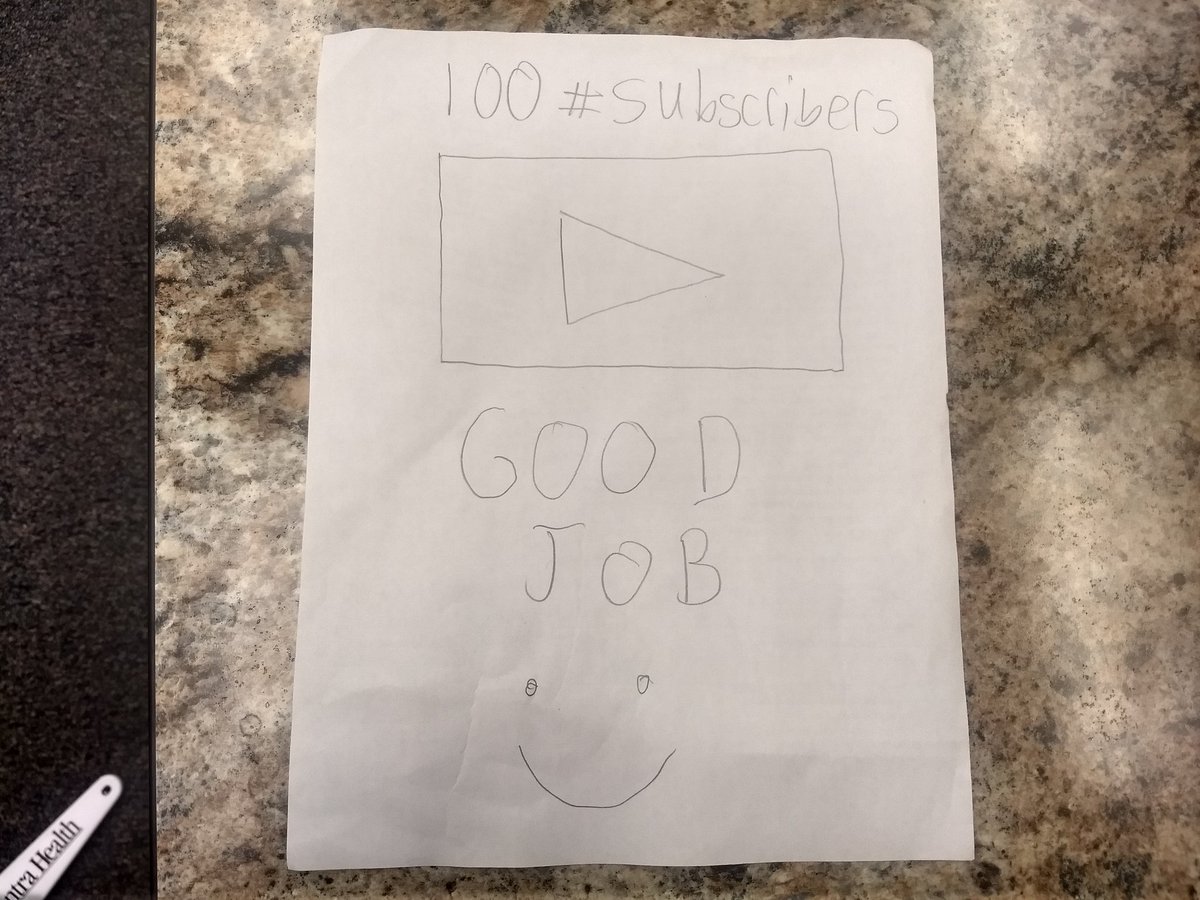 100 #subscribers
GOOD
JOB
ntra Health